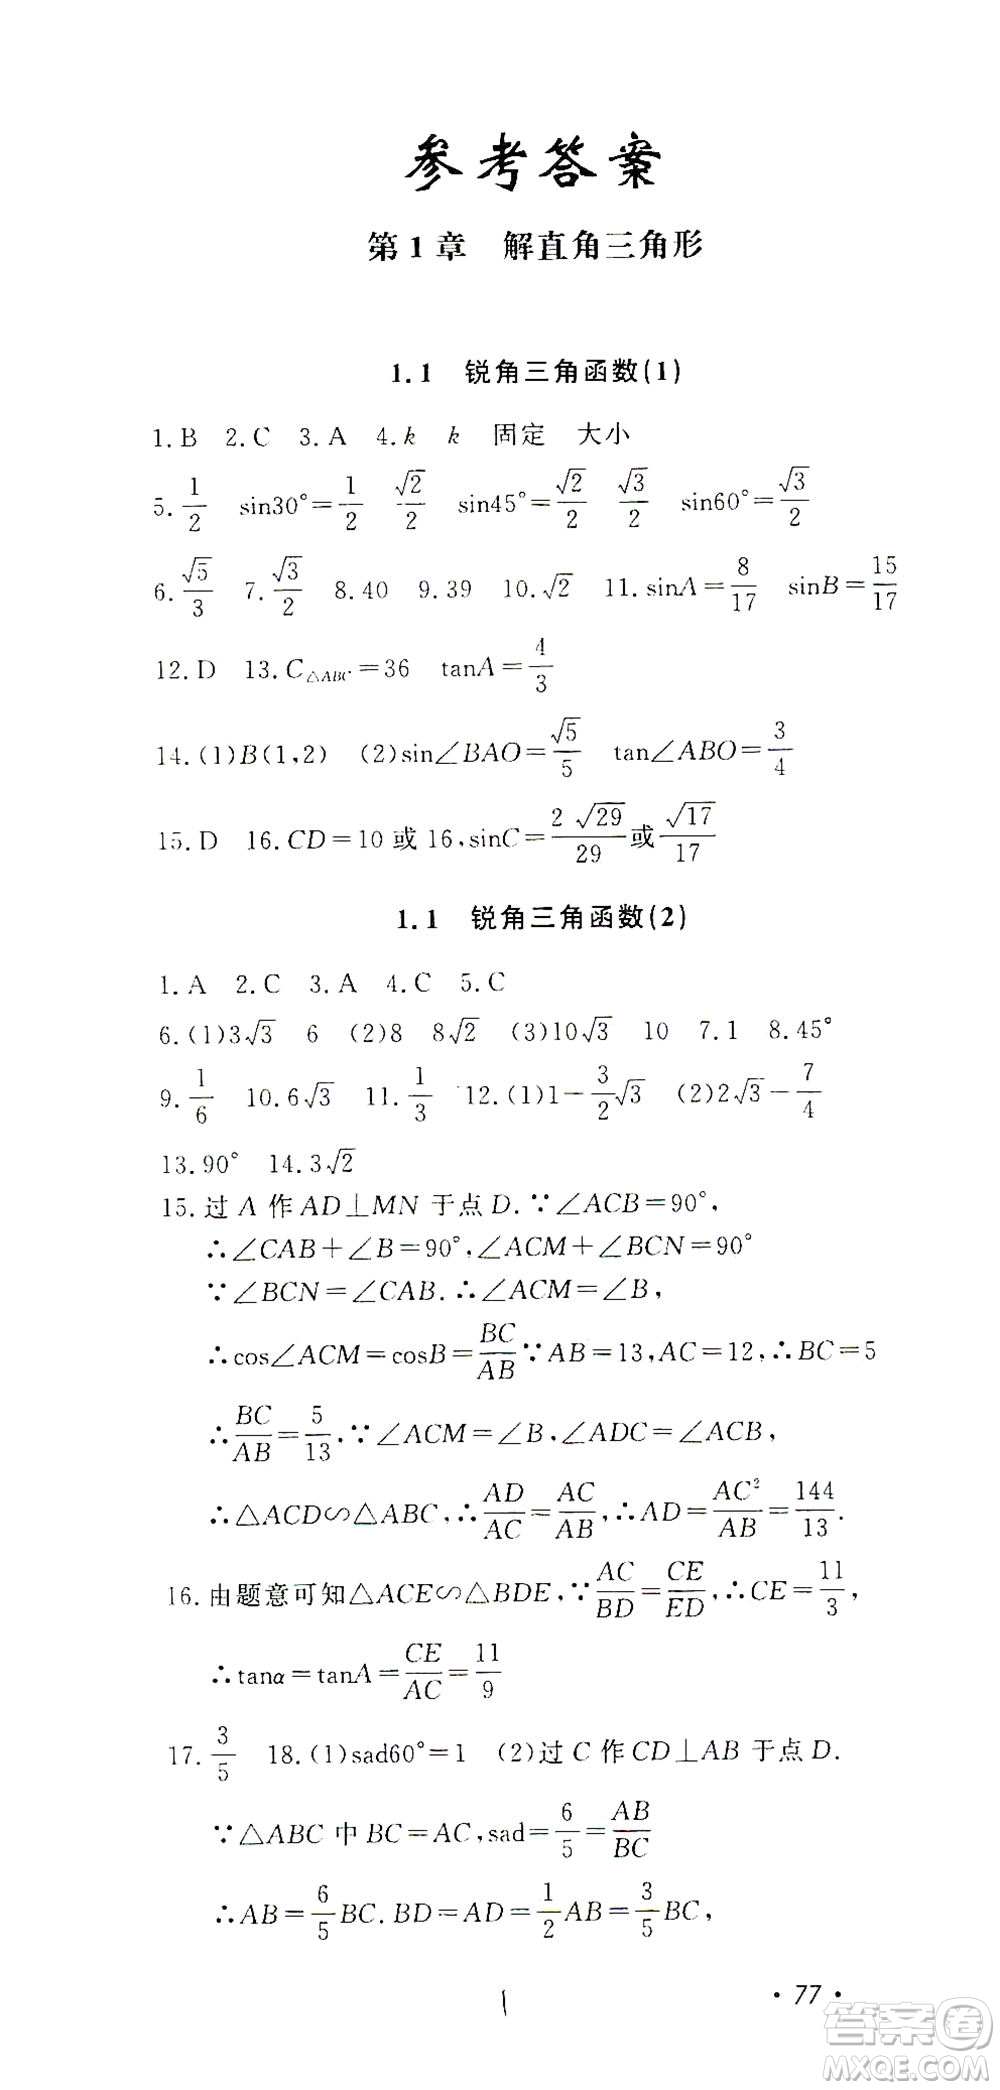 参考答案
第1章 解直角三角形
1.1 锐角三角函数(1)
1.B 2.C 3.A 4.k k 固定 大小
5.1/2 sin30°=1/2 √2/2 sin45°=√2/2 √3/2 sin60°=√3/2
6.√5/3 7.√3/2 8.40 9.39 10.√2 11.sinA=8/17 sinB=15/17
12.D 13.C△ABC=36 tanA=4/3
14.(1)B(1,2) (2)sin∠BAO=√5/5 tan∠ABO=3/4
15.D 16.CD=10或16,sinC=2√29/29或√17/17
1.1 锐角三角函数(2)
1.A 2.C 3.A 4.C 5.C
6.(1)3√3 6 (2)8 8√2 (3)10√3 10 7.1 8.45°
9.1/6 10.6√3 11.1/3 12.(1)1-3/2√3 (2)2√3-7/4
13.90° 14.3√2
15.过A作AD⊥MN于点D.∵∠ACB=90°,
∴∠CAB+∠B=90°,∠ACM+∠BCN=90°
∵∠BCN=∠CAB.∴∠ACM=∠B,
∴cos∠ACM=cosB=BC/AB∵AB=13,AC=12,∴BC=5
∴BC/AB=5/13,∵∠ACM=∠B,∠ADC=∠ACB,
∴△ACD∽△ABC,∴AD/AC=AC/AB,∴AD=AC²/AB=144/13.
16.由题意可知△ACE∽△BDE,∵AC/BD=CE/ED,∴CE=11/3,
∴tanα=tanA=CE/AC=11/9
17.3/5 18.(1)sad60°=1 (2)过C作CD⊥AB于点D.
∵△ABC中BC=AC,sad=6/5=AB/BC
∴AB=6/5BC.BD=AD=1/2AB=3/5BC,
·77·
1
答案圈
MXQE.COM